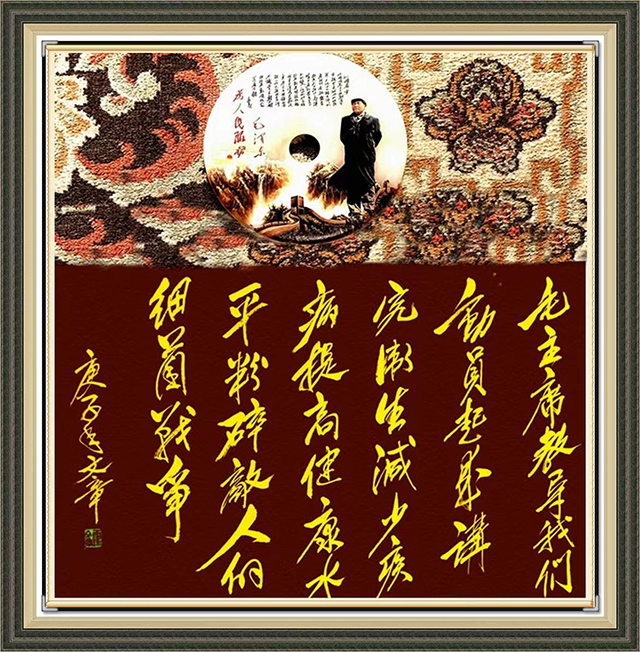 为人民服务
毛泽东
毛主席教导我们
動員起来講
究衛生減少疾
病提高健康水
平粉碎敵人的
细菌戰争
庚子年文章